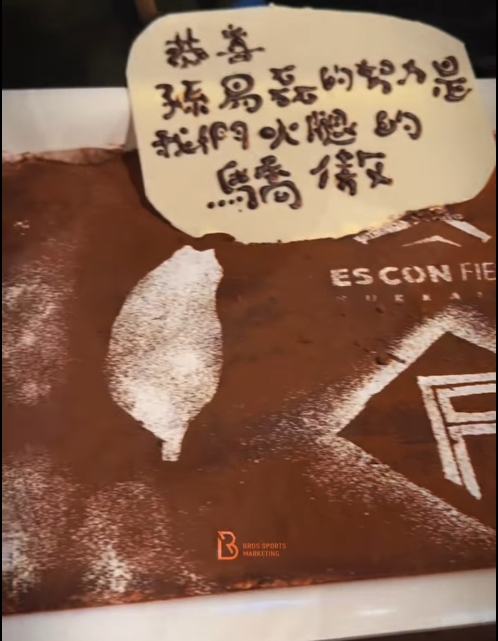 恭喜
孫易磊的努力是
我們火腿的
驕傲
ESCON FIE
F
B BROS SPORTS
MARKETING